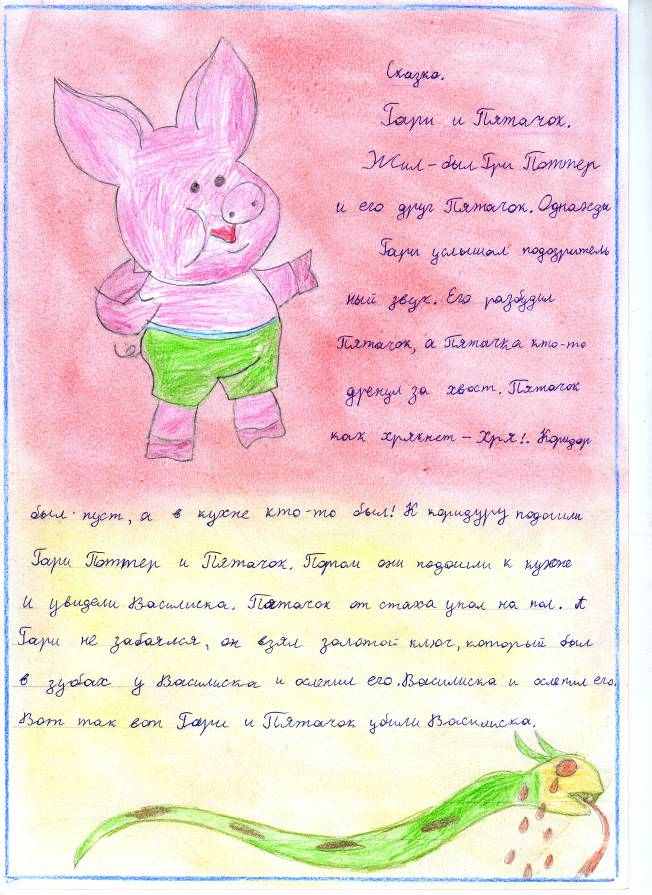 Сказка.
Гари и Пятачок.
Жил-был Гри Поттер
и его друг Пятачок. Однажды
Гари услышал подозритель
ный звук. Его разбудил
Пятачок, а Пятачка кто-то
дренул за хвост. Пятачок
как хрякнет - Хря!. Коридор
был пуст, а в кухне кто-то был! К коридуру подошли
Гари Поттер и Пятачок. Потом они подошли к кухне
и увидели Василиска. Пятачок от стаха упал на пол. А
Гари не забоялся, он взял золотой ключ, который был
в зубах у Василиска и ослепил его. Василиска и ослепил его.
Вот так вот Гари и Пятачок убили Василиска.